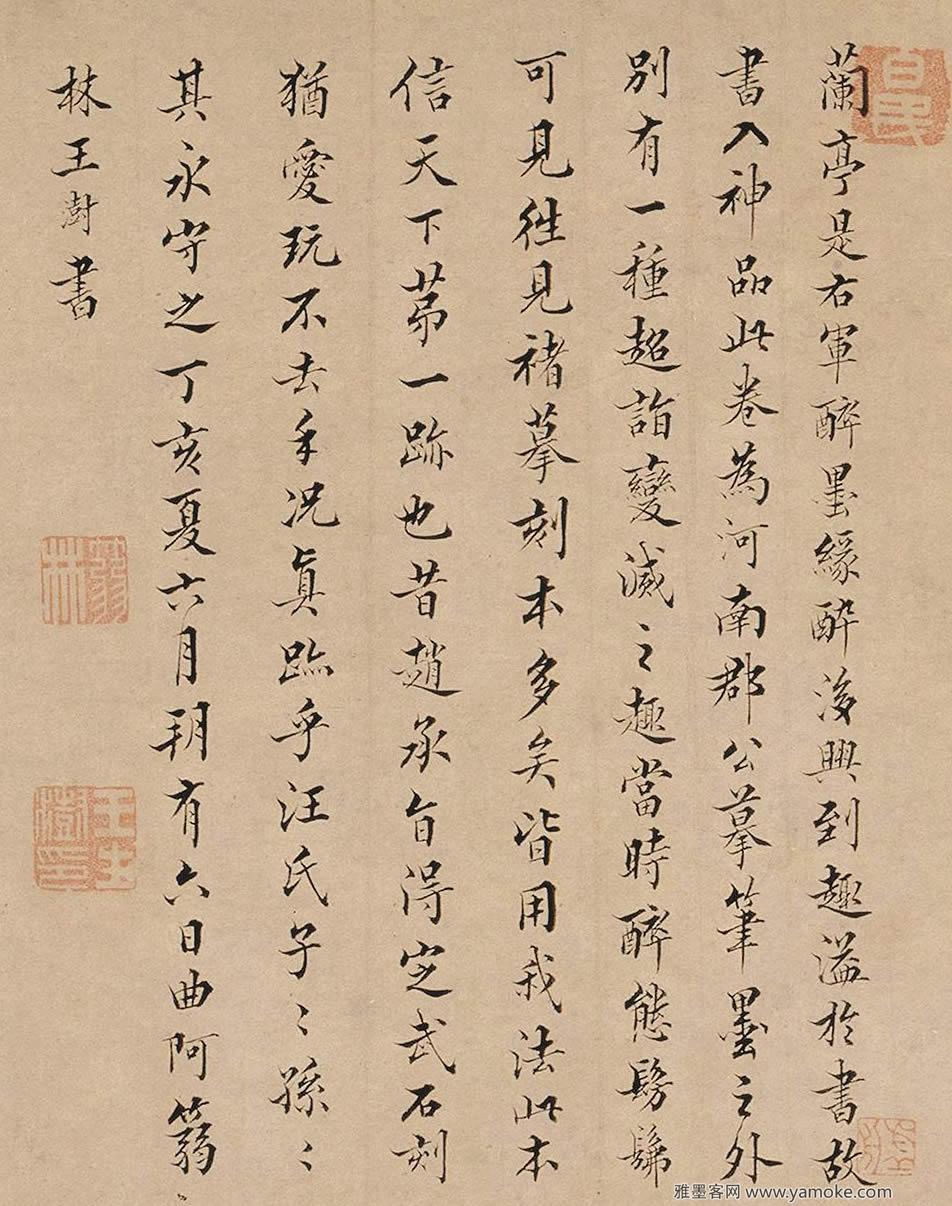 蘭亭是右軍醉墨緣醉後興到趣溢於書故
書入神品此卷為河南郡公摹筆墨之外
別有一種超詣變滅之趣當時醉態髣髴
可見往見褚摹刻本多矣皆用我法此本
信天下苐一跡也昔趙承旨得定武石刻
猶愛玩不去手况真跡乎汪氏子〻孫〻
其永守之丁亥夏六月朔有六日曲阿蒻
林王澍書
雅墨客网 www.yamoke.com